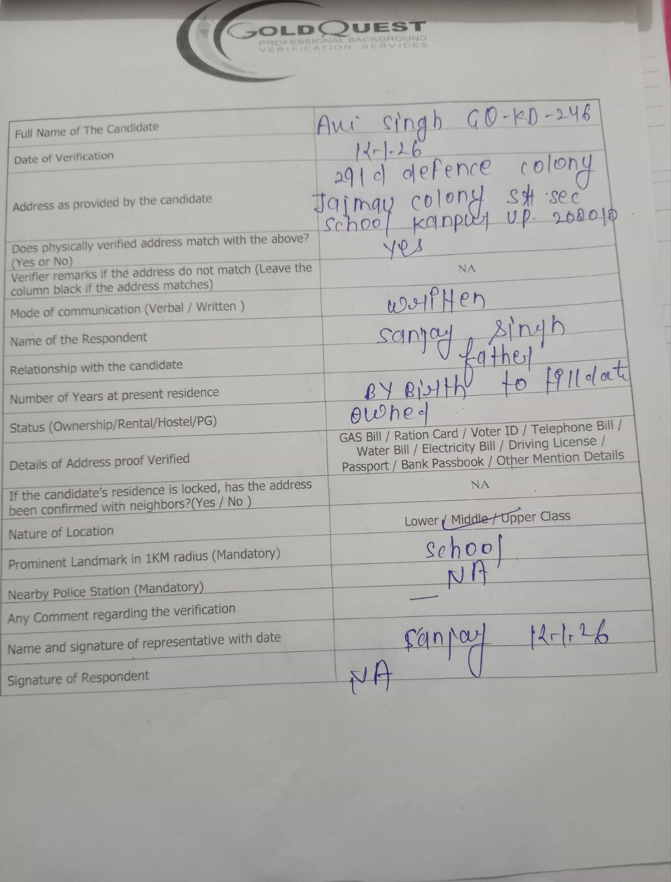 GOLDQUEST
PROFESSIONAL BACKGROUND
VERIFICATION SERVICES
Full Name of The Candidate Avi Singh GQ-KD-246
Date of Verification 12-1-26
Address as provided by the candidate 291 d defence colony
Jajmay colony sec
school kanpur UP-208010
Does physically verified address match with the above?
(Yes or No) yes
Verifier remarks if the address do not match (Leave the
column black if the address matches) NA
Mode of communication (Verbal / Written ) written
Name of the Respondent Sanjay Singh
Relationship with the candidate father
Number of Years at present residence BY Birth to
Status (Ownership/Rental/Hostel/PG) owned
Details of Address proof Verified GAS Bill / Ration Card / Voter ID / Telephone Bill /
Water Bill / Electricity Bill / Driving License /
Passport / Bank Passbook / Other Mention Details
If the candidate's residence is locked, has the address
been confirmed with neighbors?(Yes / No ) NA
Nature of Location Lower / Middle / Upper Class
Prominent Landmark in 1KM radius (Mandatory) school
Nearby Police Station (Mandatory) NA
Any Comment regarding the verification —
Name and signature of representative with date Sanjay 12-1-26
Signature of Respondent NA